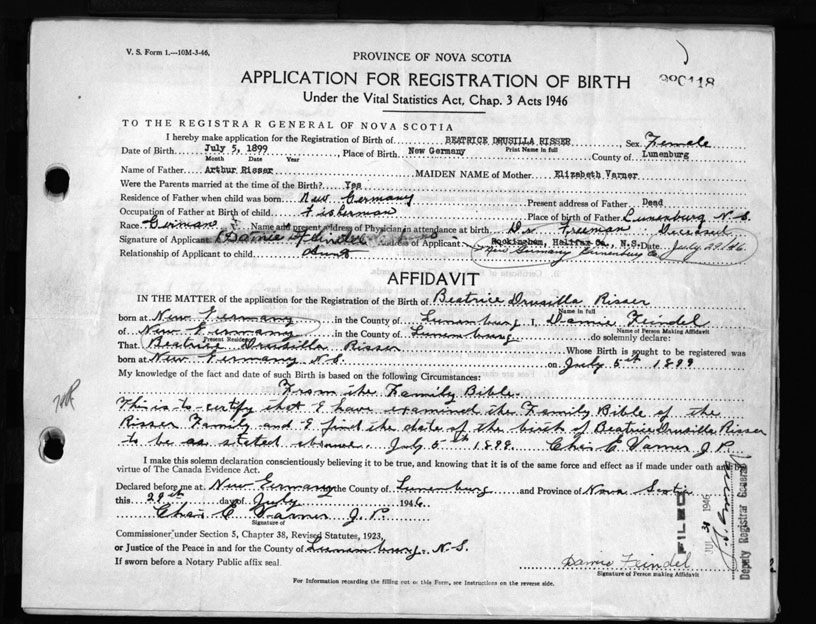 V. S. Form 1.—10M-3-46.
PROVINCE OF NOVA SCOTIA
APPLICATION FOR REGISTRATION OF BIRTH
Under the Vital Statistics Act, Chap. 3 Acts 1946
TO THE REGISTRAR GENERAL OF NOVA SCOTIA
I hereby make application for the Registration of Birth of BEATRICE DRUSILLA RISSER Sex Female
Print Name in full
Date of Birth July 5, 1899 Place of Birth New Germany County of Lunenburg
Month Date Year
Name of Father Arthur Risser MAIDEN NAME of Mother Elizabeth Varner
Were the Parents married at the time of the Birth? Yes
Residence of Father when child was born New Germany Present address of Father Dead
Occupation of Father at Birth of child Fisherman Place of birth of Father Lunenburg N.S.
Race German Name and present address of Physician in attendance at birth Dr Freeman Deceased
Signature of Applicant Damie Feindel Address of Applicant Rockingham, Halifax Co., N.S. Date July 29/46
New Germany Lunenburg Co
Relationship of Applicant to child Aunt
AFFIDAVIT
IN THE MATTER of the application for the Registration of the Birth of Beatrice Drusilla Risser
Name in full
born at New Germany in the County of Lunenburg I, Damie Feindel
Name of Person Making Affidavit
of New Germany in the County of Lunenburg do solemnly declare:
Present Residence
That Beatrice Drusilla Risser Whose Birth is sought to be registered was
born at New Germany N.S. on July 5th 1899
My knowledge of the fact and date of such Birth is based on the following Circumstances:
From the Family Bible.
This is to certify that I have examined the Family Bible of the
Risser Family and I find the date of the birth of Beatrice Drusilla Risser
to be as stated above. July 5th 1899. Chas E Varner J.P.
I make this solemn declaration conscientiously believing it to be true, and knowing that it is of the same force and effect as if made under oath and by
virtue of The Canada Evidence Act.
Declared before me at New Germany the County of Lunenburg and Province of Nova Scotia
this 29th day of July 1946.
Chas E Varner J.P.
Signature of
Commissioner under Section 5, Chapter 38, Revised Statutes, 1923,
or Justice of the Peace in and for the County of Lunenburg, N.S.
If sworn before a Notary Public affix seal.
Damie Feindel
Signature of Person making Affidavit
FILED
JUL 31 1946
Deputy Registrar General
For Information regarding the filling out of this Form, see Instructions on the reverse side.